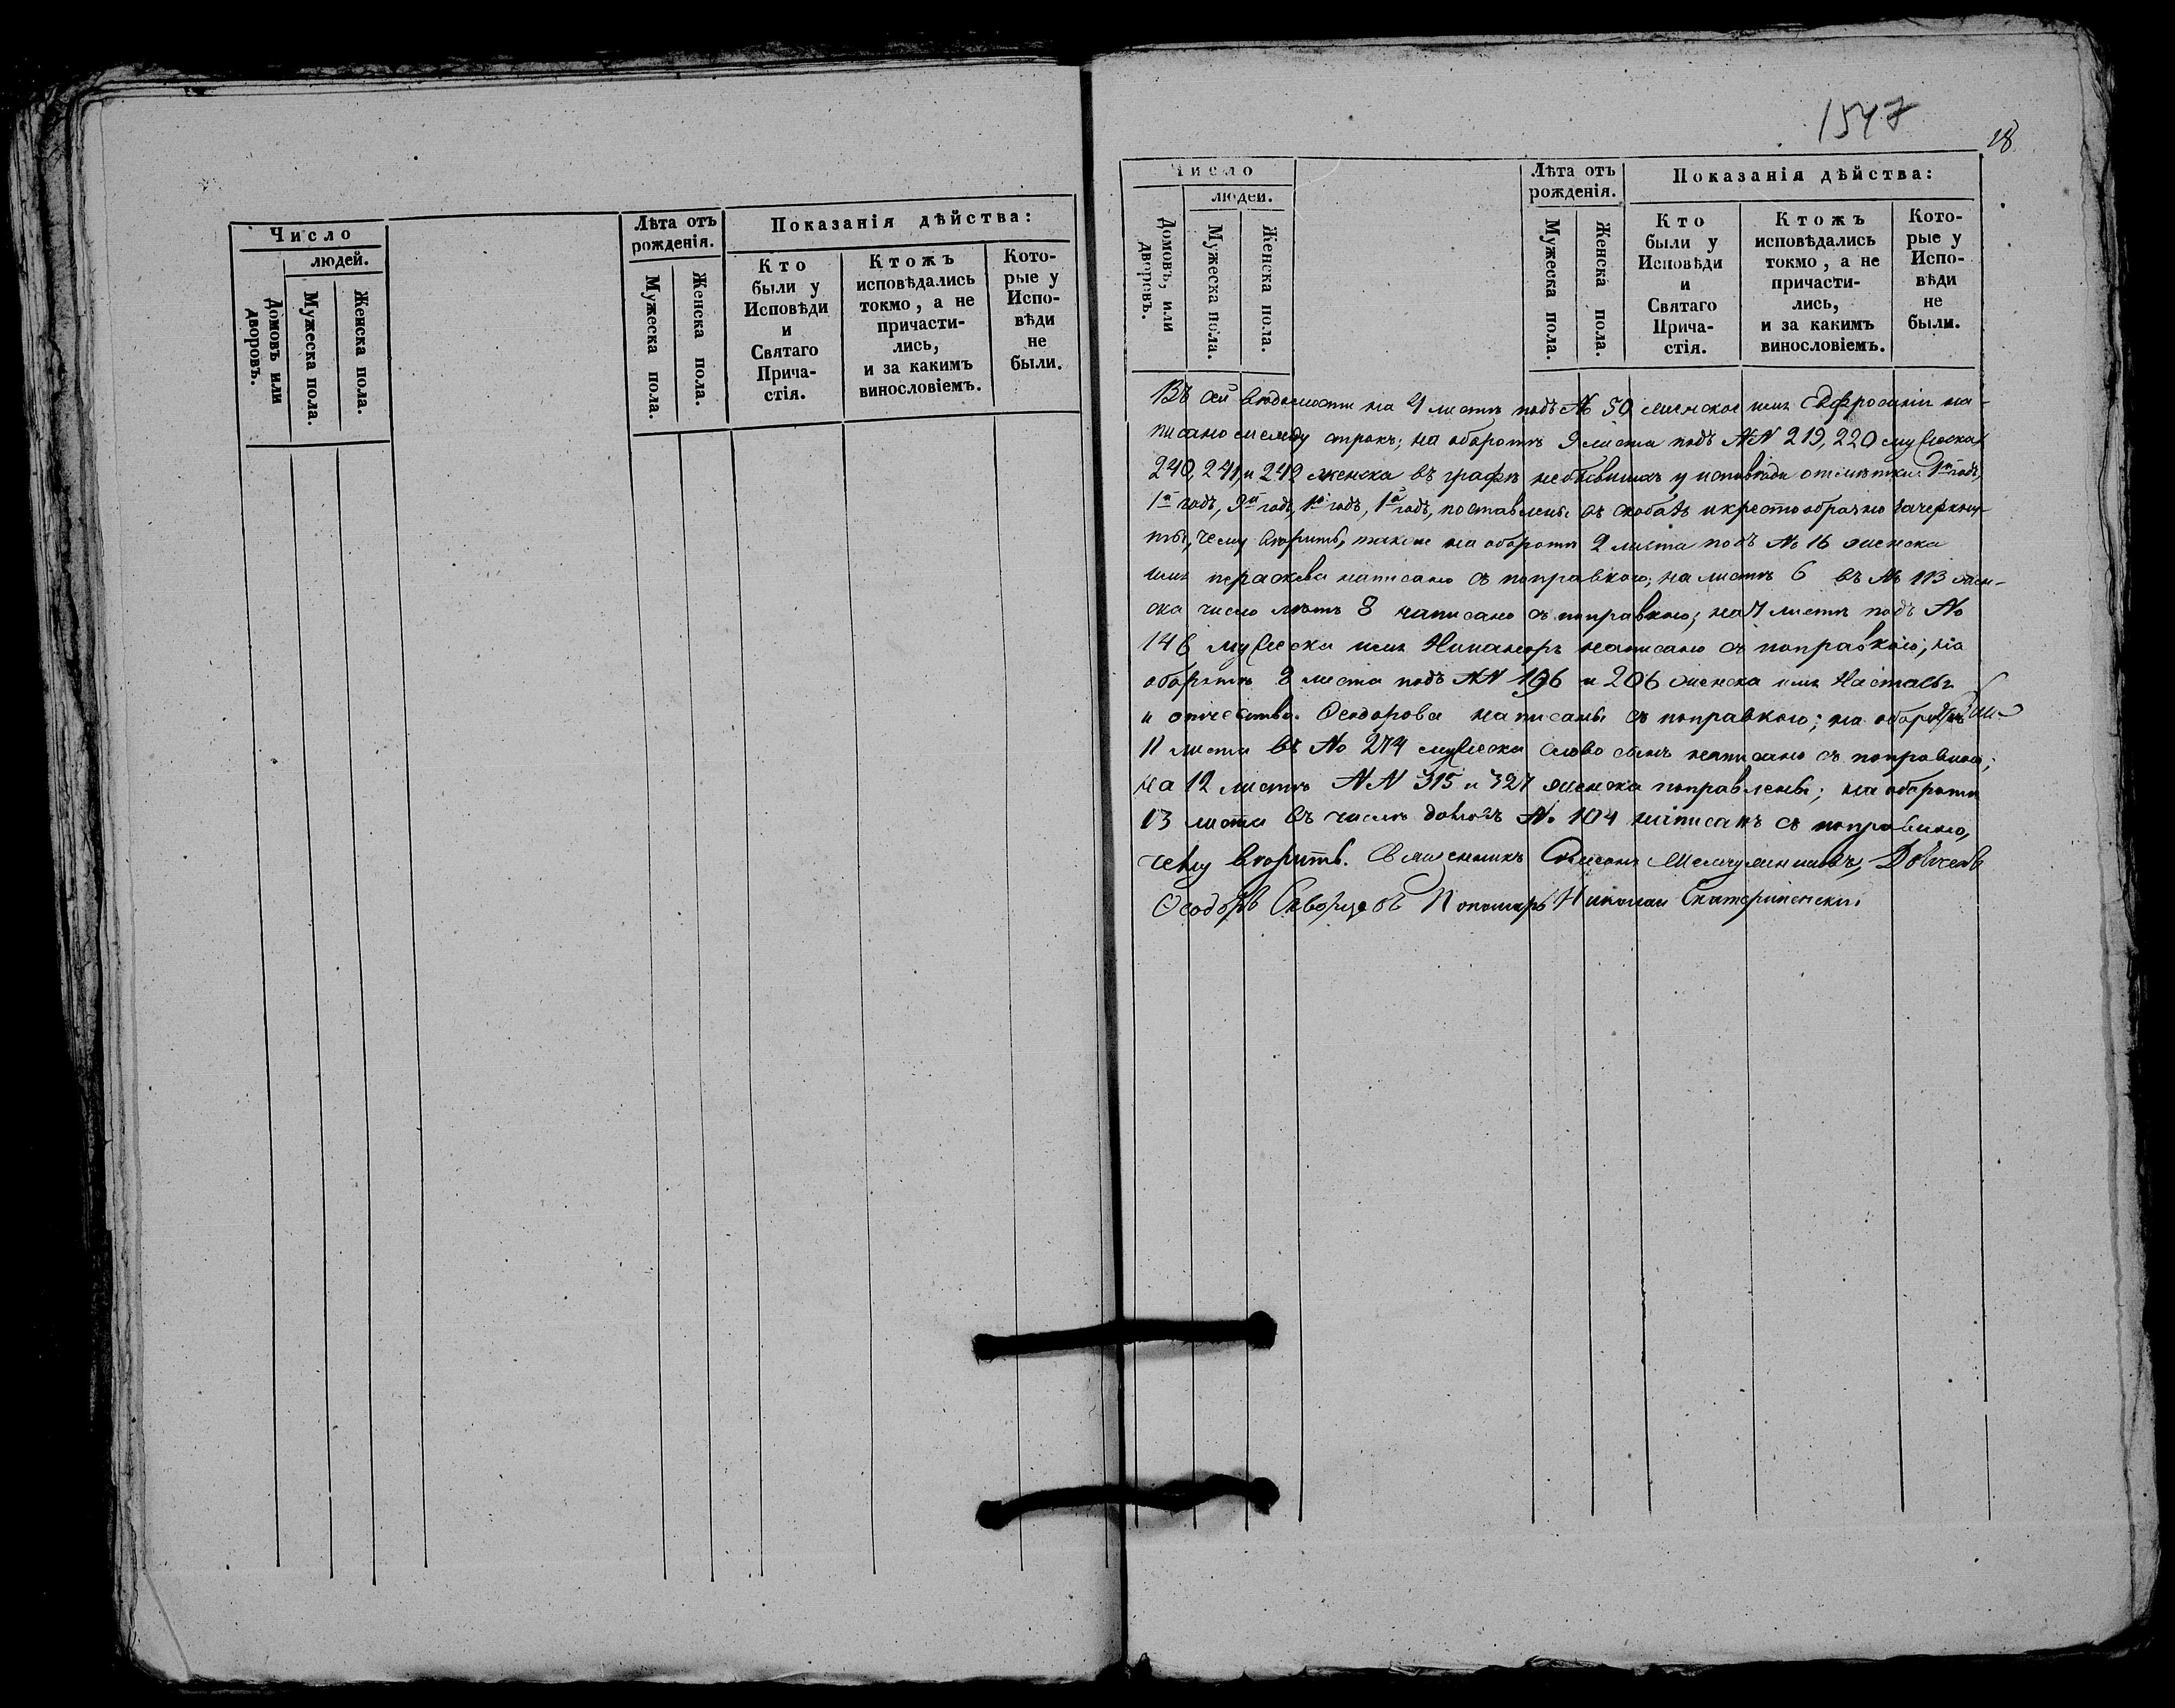 Число
людей.
Домовъ или дворовъ.
Мужеска пола.
Женска пола.
Лѣта отъ рожденія.
Мужеска пола.
Женска пола.
Показанія дѣйства:
Кто были у Исповѣди и Святаго Прича-стія.
Ктожъ исповѣдались токмо, а не причасти-лись, и за какимъ винословіемъ.
Кото-рые у Испо-вѣди не были.
1547
18
Число
людей.
Домовъ, или дворовъ.
Мужеска пола.
Женска пола.
Лѣта отъ рожденія.
Мужеска пола.
Женска пола.
Показанія дѣйства:
Кто были у Исповѣди и Святаго Прича-стія.
Ктожъ исповѣдались токмо, а не причасти-лись, и за какимъ винословіемъ.
Кото-рые у Испо-вѣди не были.
Въ сей вѣдомости на 4 листѣ подъ № 50 женское имя Евфросинія на-
писано между строкъ; на оборотѣ 9 листа подъ №№ 219, 220 мужеска
240, 241, и 242 женска въ графѣ небывшихъ у исповѣди отмѣтки: 1й годъ,
1й годъ, годъ, 1й годъ, 1й годъ, поставлены въ скобахъ и крестообразно зачеркну-
ты, чему вѣрить, также на оборотѣ 2 листа подъ № 16 женска
имя Параскева написано съ поправкою; на листѣ 6 въ № 113 жен-
ска число лѣтъ 8 написано съ поправкою; на 7 листѣ подъ №
146 мужеска имя Никаноръ написано съ поправкою; на
оборотѣ 8 листа подъ №№ 196 и 206 женска имя Настасья
и отчество Ѳеодорова написаны съ поправкою; на оборотѣ
11 листа въ № 274 мужеска слово сынъ написано съ поправкою;
на 12 листѣ №№ 315 и 327 женска поправлены; на оборотѣ
13 листа въ числѣ домовъ № 104 написанъ съ поправкою,
чему вѣрить. Священникъ Симеонъ Дьячекъ
Ѳеодоръ Скворцовъ Пономарь Николай Екатерининскій